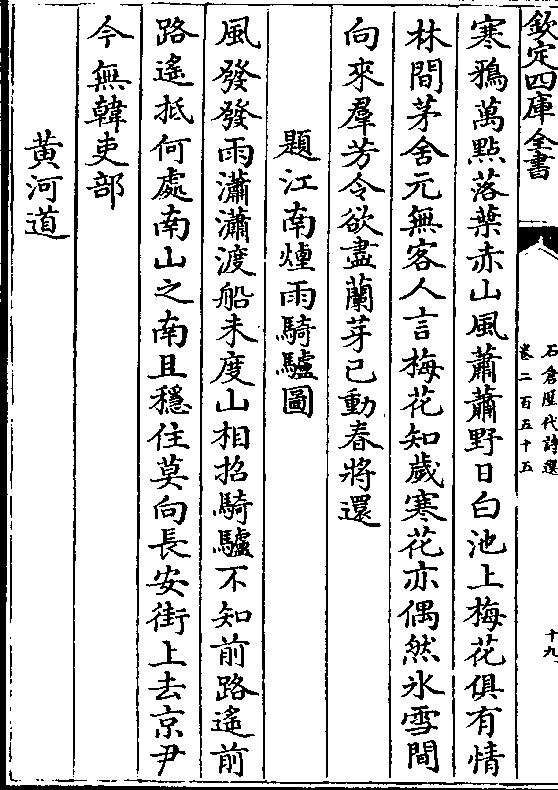 欽定四庫全書
石倉歷代詩選
卷二百五十五
十九
寒鴉萬點落葉赤山風蕭蕭野日白池上梅花俱有情
林間茅舍元無客人言梅花知歲寒花亦偶然氷雪間
向來羣芳令欲盡蘭芽已動春將還
題江南煙雨騎驢圖
風發發雨瀟瀟渡船未度山相招騎驢不知前路遙前
路遙抵何處南山之南且穩住莫向長安街上去京尹
今無韓吏部
黄河道